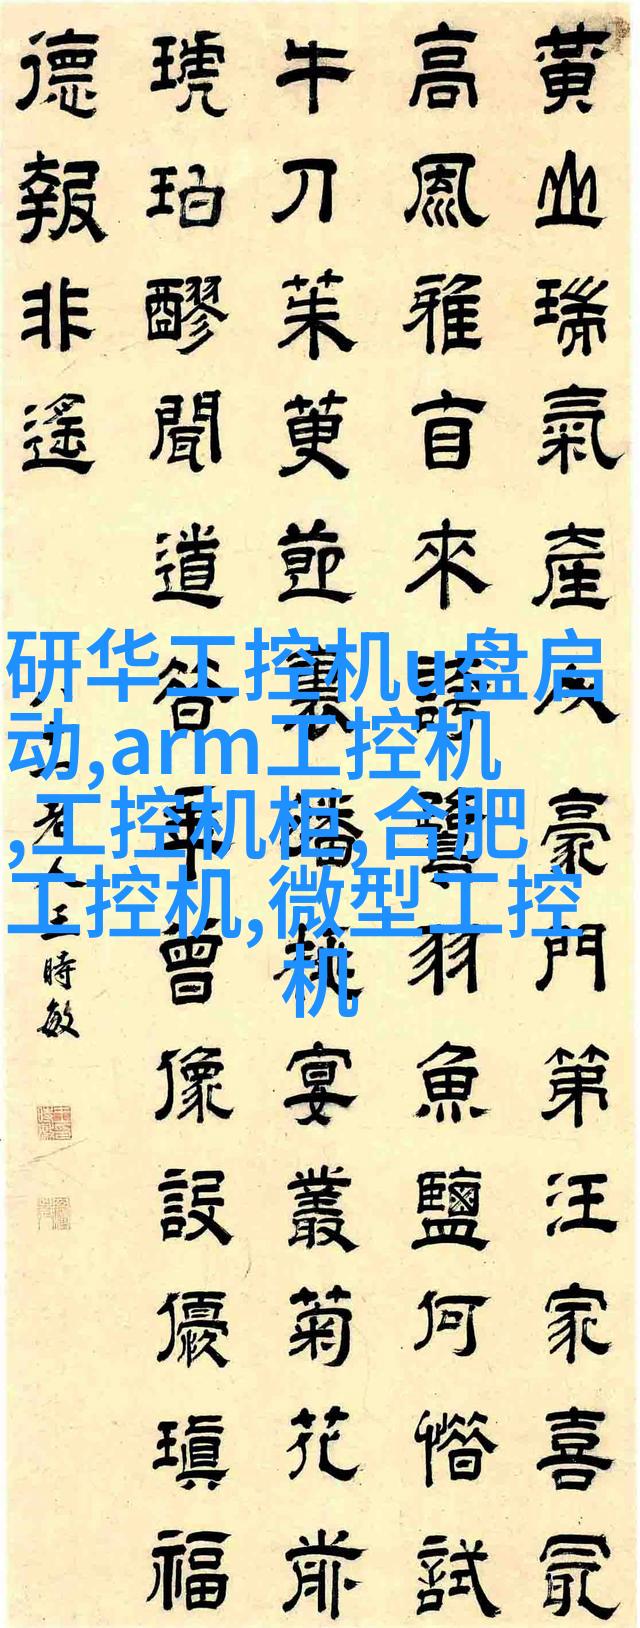 黃山瑞氣產人豪門第汪家喜最
高風雅盲來羽魚鹽何憯試
牛刀茱萸節裏蟠桃宴叢菊花前
琥珀醪聞道曾像設優瑱福
德報非遙
老人王時敏
研华工控机u盘启
动,arm工控机
,工控机柜,合肥
工控机,微型工控
机